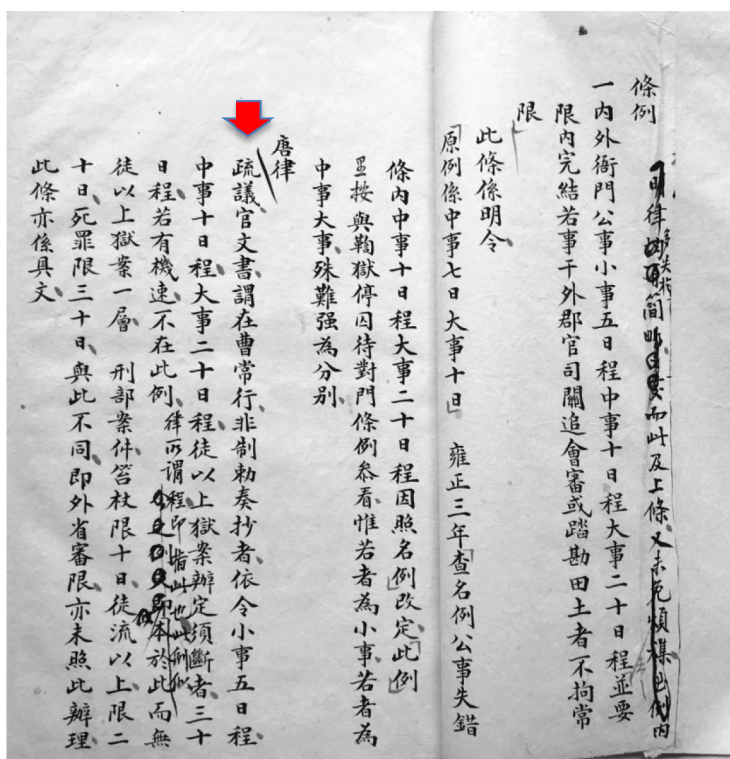 條例
明律均有簡明而此及上條又未免煩雜出例內
一內外衙門公事小事五日程中事十日程大事二十日程並要
限內完結若事干外郡官司關追會審或踏勘田土者不拘常
限
此條係明令
原例係中事七日大事十日 雍正三年查名例公事失錯
條內中事十日程大事二十日程因照名例改定此例
按與鞫獄停囚待對門條例叅看惟若者為小事若者為
中事大事殊難强為分别
唐律
疏議官文書謂在曹常行非制勅奏抄者依令小事五日程
中事十日程大事二十日程徒以上獄案辦定須斷者三十
日程若有機速不在此例 律所謂程即指此也此例似本於此而無
徒以上獄案一層 刑部案件笞杖限十日徒流以上限二
十日死罪限三十日與此不同即外省審限亦未照此辦理
此條亦係具文